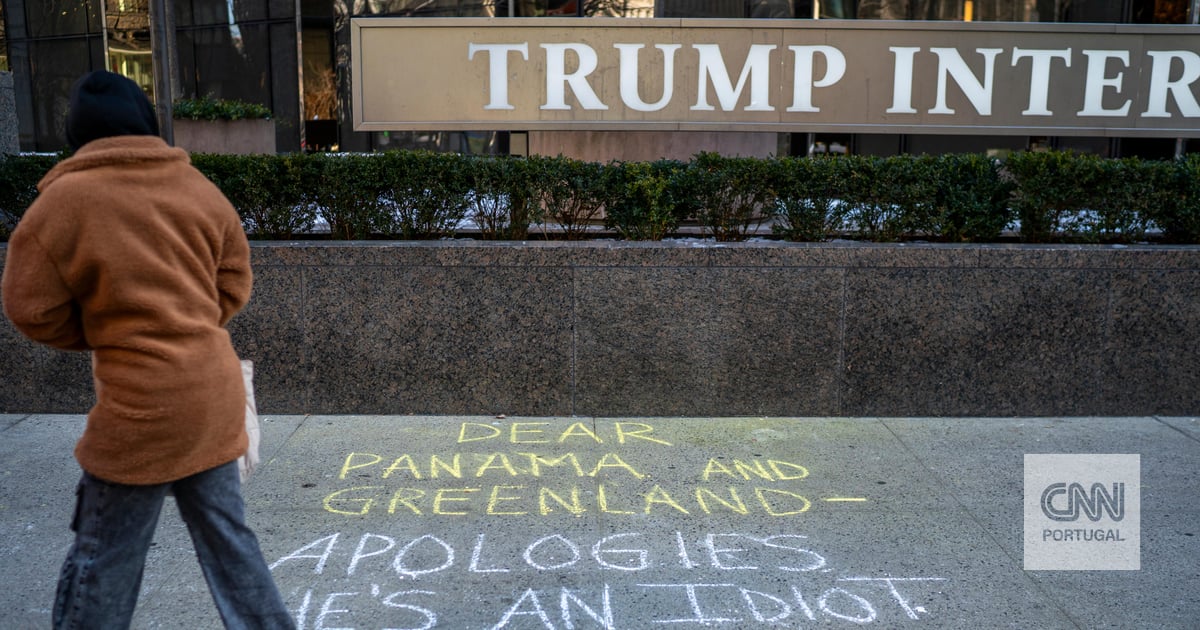 TRUMP INTER
DEAR
PANAMA AND
GREENLAND –
APOLOGIES
HE'S AN IDIOT
CNN
PORTUGAL